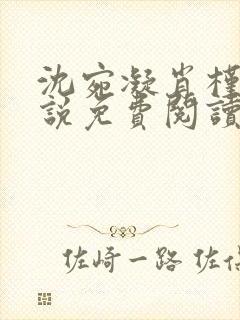 沈宛凝肖槿
說免費閱讀
佐崎一路 佐佰